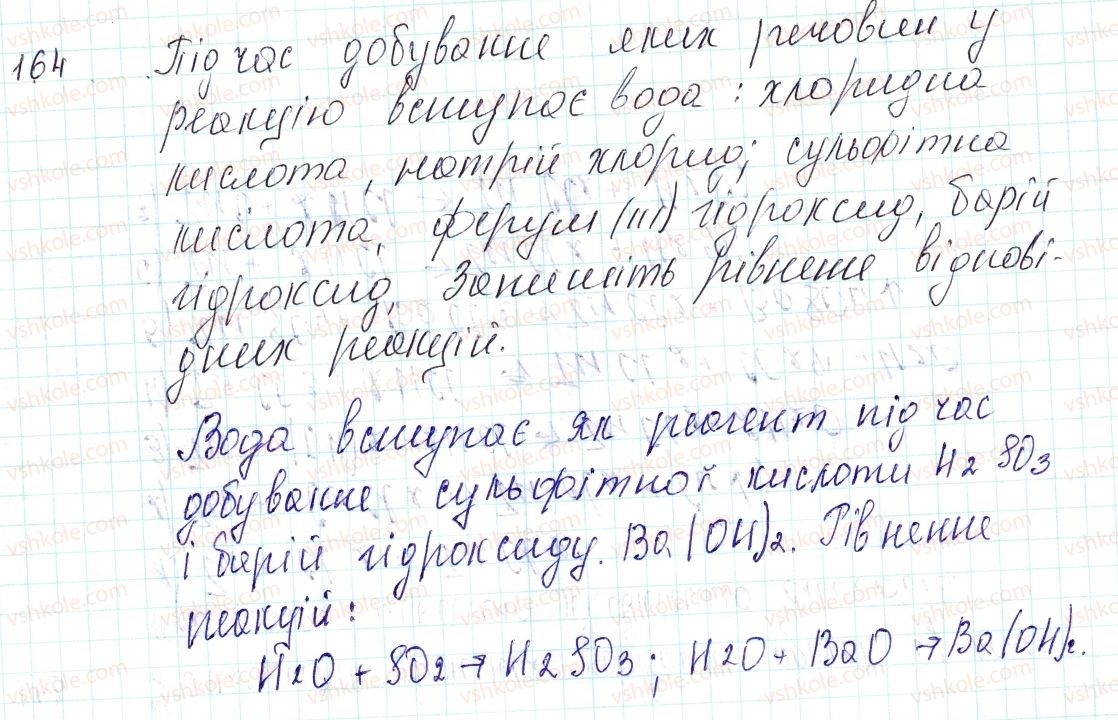 164 Під час добування яких речовин у
реакцію вступає вода: хлоридна
кислота, натрій хлорид; сульфітна
кислота, ферум (III) гідроксид, барій
гідроксид. Запишіть рівнення відпові-
дних реакцій.
Вода вступає як реагент під час
добування сульфітної кислоти H2SO3
і барій гідроксиду. Ba(OH)2. Рівнення
реакцій:
H2O + SO2 → H2SO3; H2O + BaO → Ba(OH)2.
vshkole.com